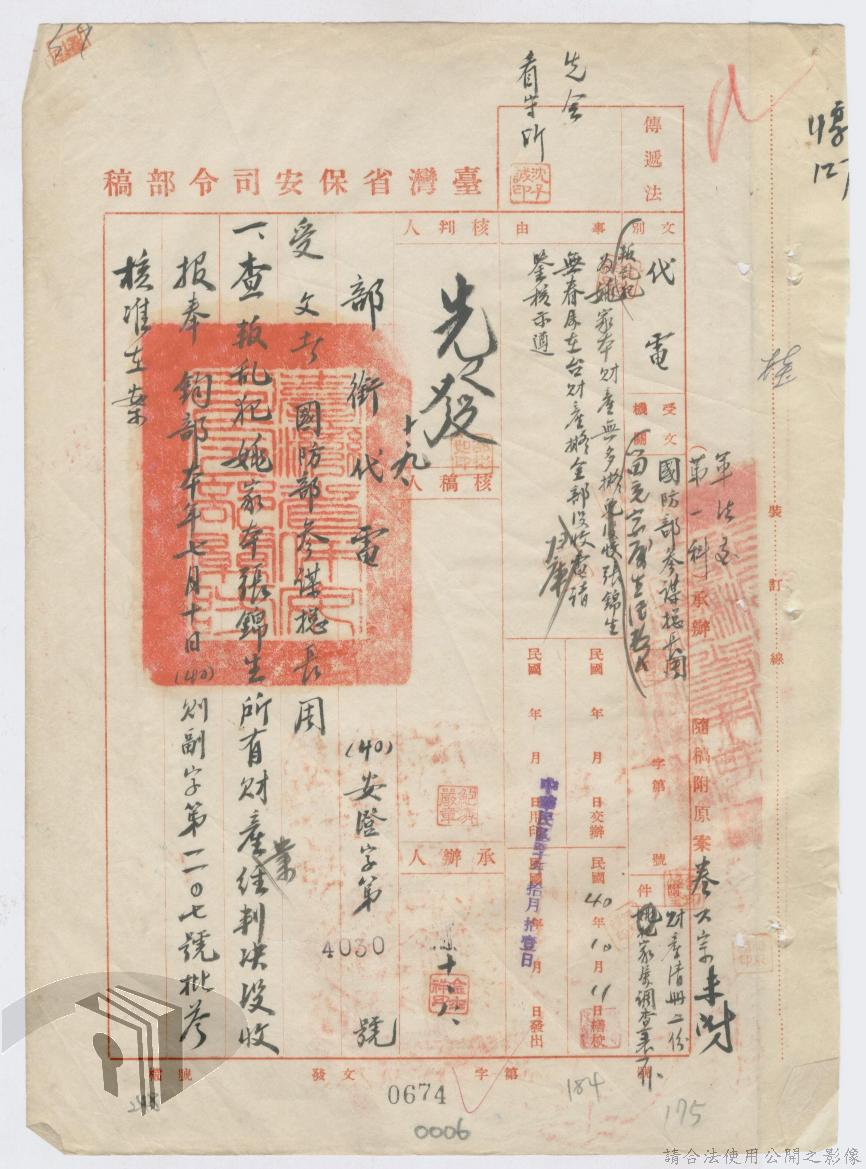 先会
看守所
傳遞法
臺灣省保安司令部稿
文別
代電
受文機關
國防部參謀總長周
事由
叛乱犯
為姚家本財產無多擬免沒收張錦生
無眷屬在台財產擬全部沒收電請
鑒核示遵
軍法處
(第一科)承辦
隨稿附原案卷 宗未附
裝訂線
字第 號
件
財產清冊二份
民國 年 月 日交辦
民國40年10月11日繕校
民國 年 月 日用印
民國 年 月 日發出
中華民國四十年拾月拾壹日
核判人
先發
核稿人
承辦人
部銜代電
(40)安澄字第4030號
受文者國防部參謀總長周
一、查叛乱犯姚家本張錦生所有財產業經判決沒收
報奉 鈞部本年七月十日(40)則副字第一二0七號批答
核准在案
檔號
發文 字第 號
0674
0006
184
175
請合法使用公開之影像